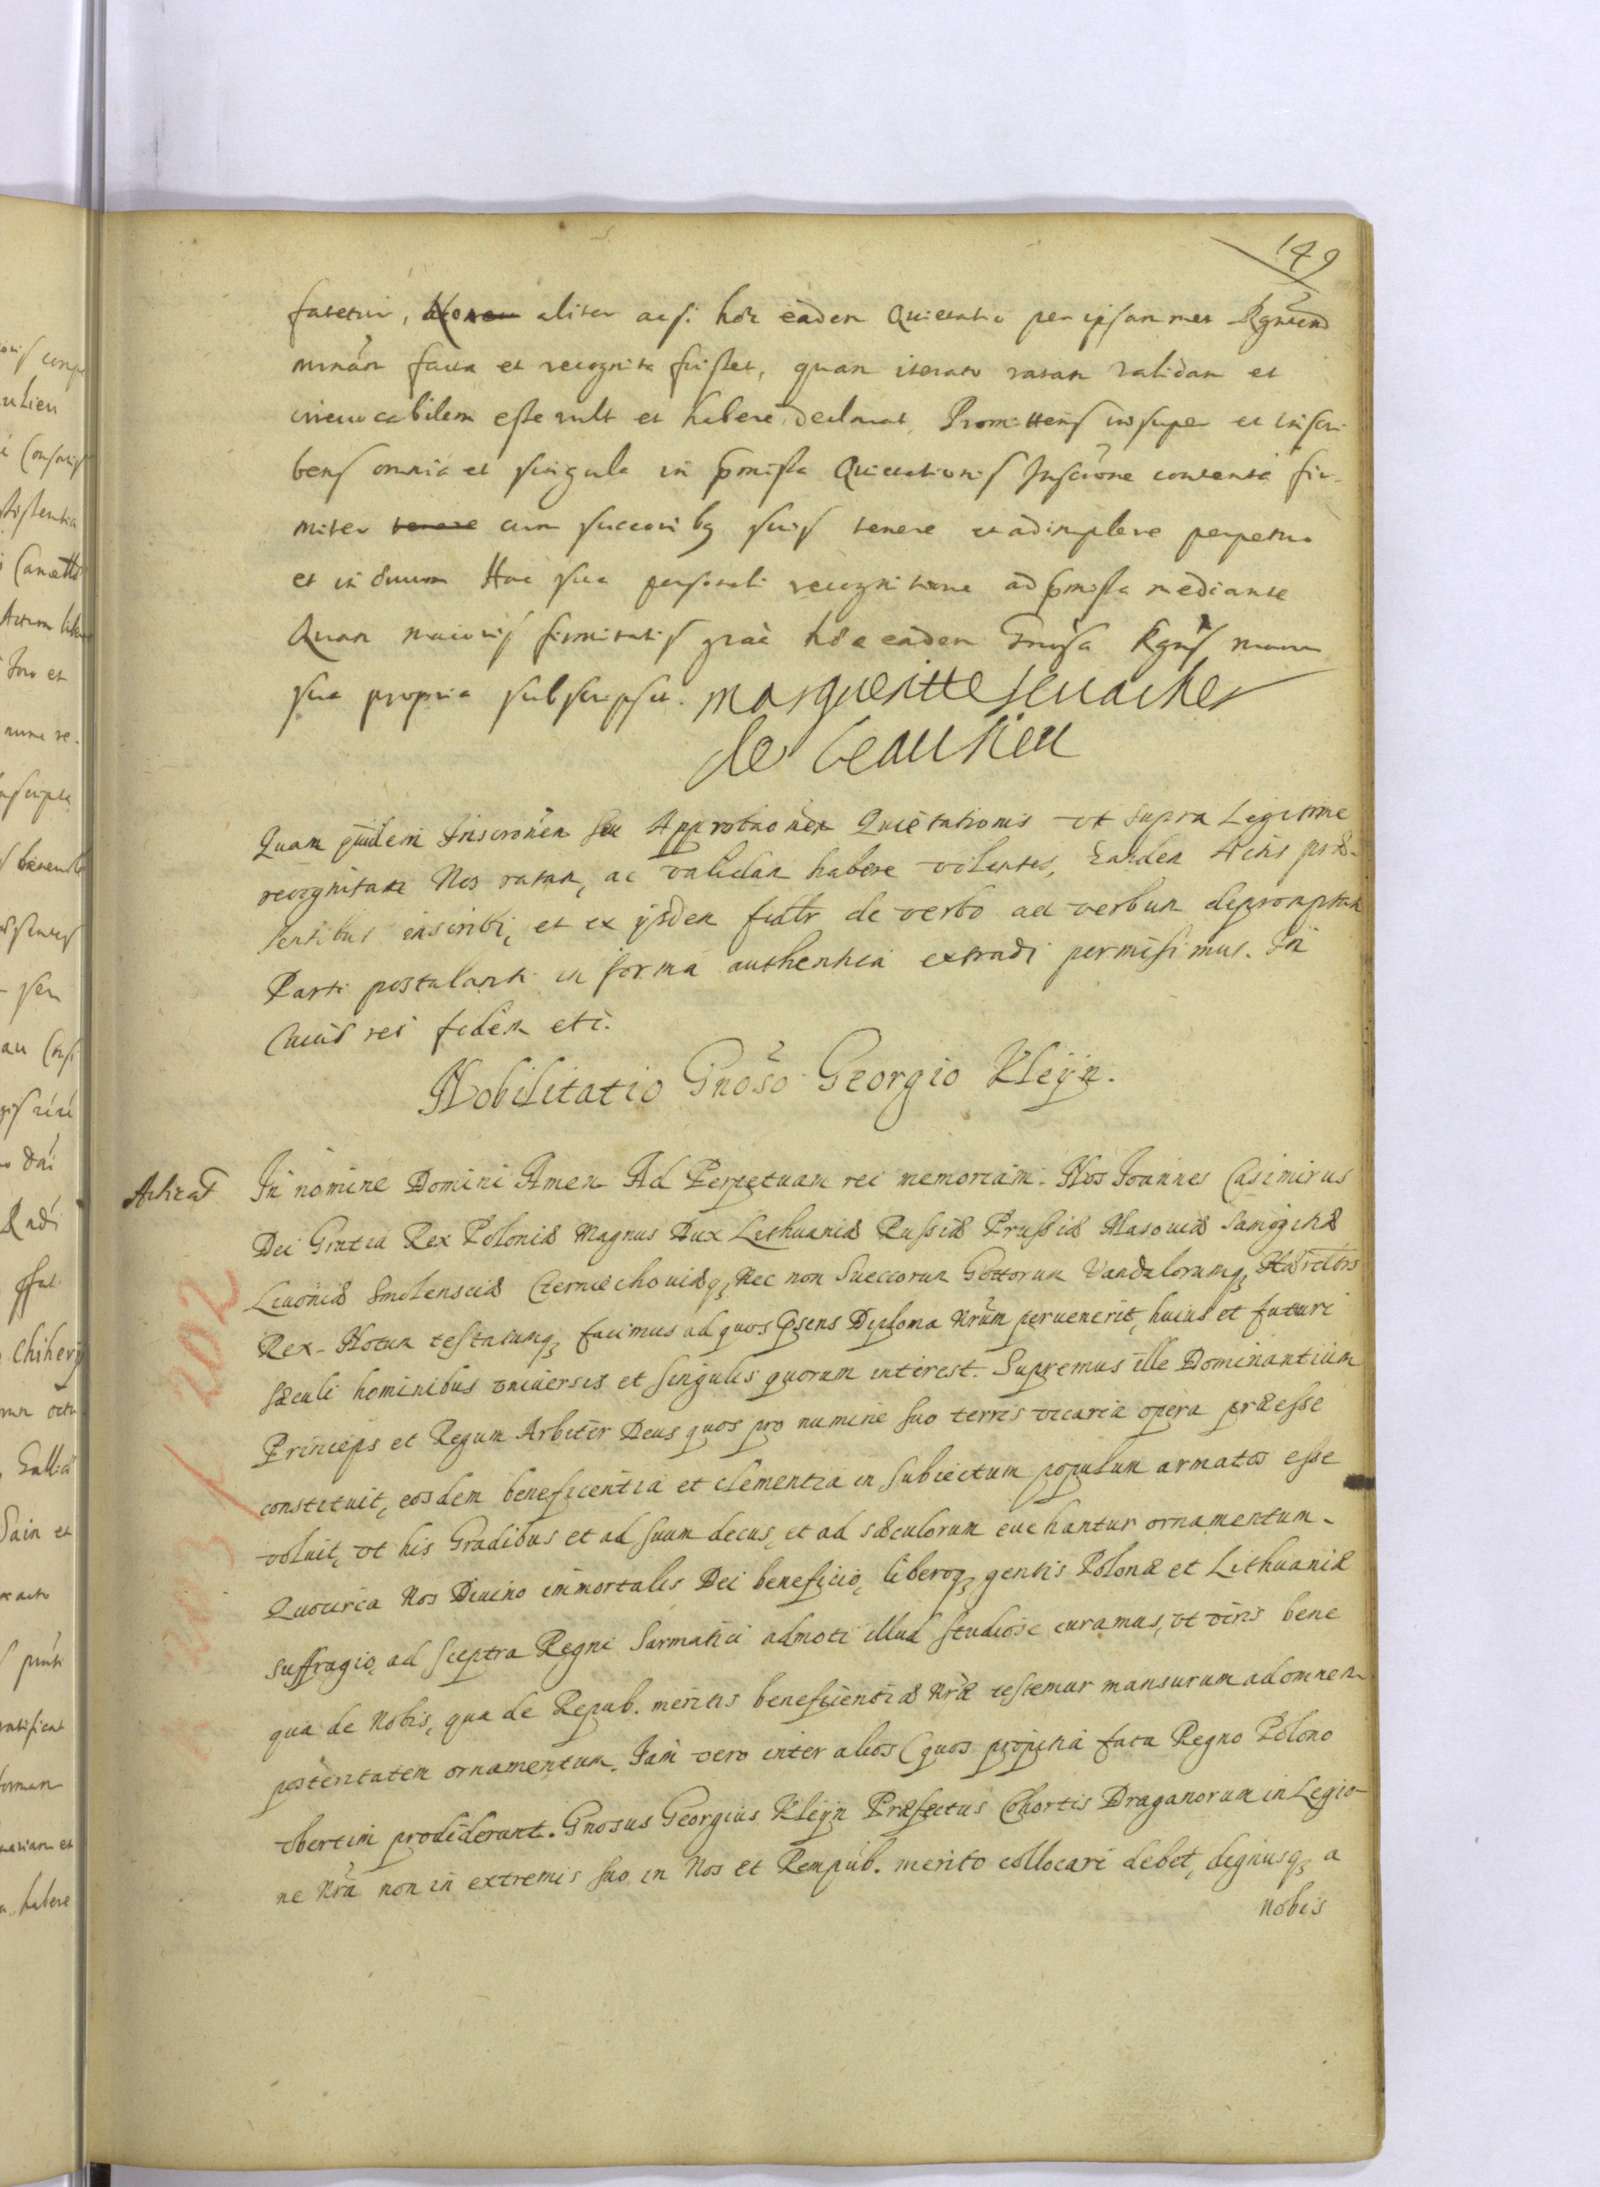 149
fatetur, aliter acsi hæc eadem Quietatio per ipsammet
minãm facta et recognita fuisset, quam iterato ratam validam et
irreuocabilem esse vult et habere declarat, Promittens insuper et inscri
bens omnia et singula in præmissa Quietationis Inscriõne contenta fir-
miter tenere cum successoribq suis tenere et adimplere perpetuo
et in æuum Hac sua personali recognitione ad præmissa mediante
Quam maioris firmitatis grãe hæc eadem manu
sua propria subscripsit. margueritte
de beaulieu
Quam quidem Inscrõnem seu Approbaõnem Quietationis vt supra Legitime
recognitam Nos ratam, ac validam habere volentes, Eandem Actis præ-
sentibus inscribi, et ex ijsdem fidlr de verbo ad verbum depromptam
Parti postulanti in forma authentica extradi permisimus. In
Cuius rei fidem etc.
Nobilitatio Gnõso Georgio Kleÿn.
In nomine Domini Amen Ad Perpetuam rei memoriam. Nos Joannes Casimirus
Dei Gratia Rex Poloniæ Magnus Dux Lithuaniæ Russiæ Prussiæ Masouiæ Samogitiæ
Liuoniæ Smolensciæ Czerniechouiæq, Nec non Sueccorum Gottorum Vandalorumq, Hæredits
Rex. Notum testatumq, facimus ad quos Præsens Diploma Nrũm peruenerit, huius et futuri
sæculi hominibus vniuersis et singulis quorum interest. Supremus ille Dominantium
Princeps et Regum Arbiter Deus quos pro numine suo terris vicaria opera præesse
constituit, eosdem beneficentia et clementia in subiectum populum armatos esse
voluit, vt his Gradibus et ad suum decus, et ad sæculorum euehantur ornamentum.
Quocirca Nos Diuino immortalis Dei beneficio, liberoq, gentis Polonæ et Lithuaniæ
suffragio, ad sceptra Regni Sarmatici admoti illud studiose curamus, vt viris bene
qua de Nobis, qua de Repub. meritis beneficientiæ Nræ testemur mansurum ad omnem
posteritatem ornamentum. Iam vero inter alios (quos propitia fata Regno Polono
vbertim prodiderunt. Gnosus Georgius Kleÿn Præfectus Cohortis Draganorum in Legio-
ne Nrã non in extremis suo in Nos et Rempub. merito collocari debet, dignusq, a
Nobis
202